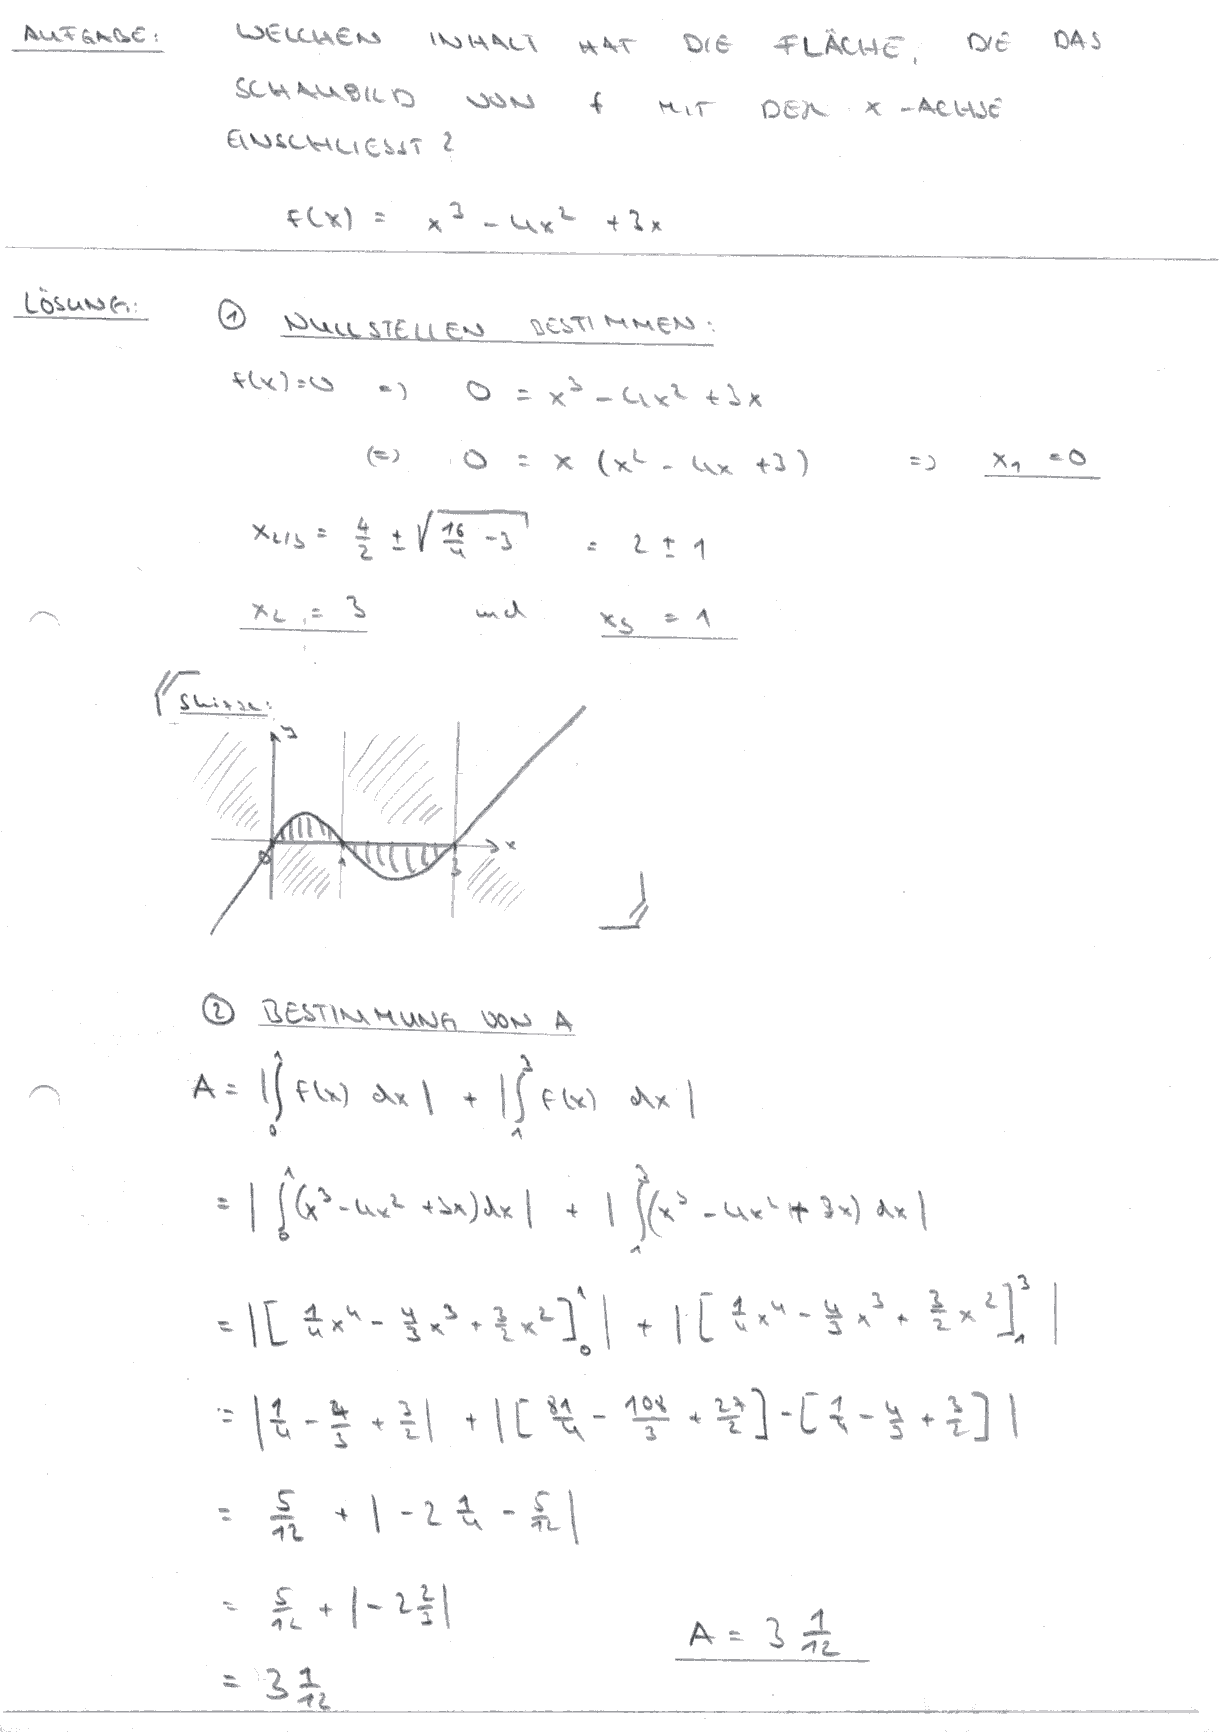 AUFGABE: WELCHEN INHALT HAT DIE FLÄCHE, DIE DAS
SCHAUBILD VON f MIT DER X-ACHSE
EINSCHLIESST?
F(x) = x³ - 4x² + 3x
LÖSUNG: ① NULLSTELLEN BESTIMMEN:
f(x)=0 => 0 = x³ - 4x² + 3x
(=) 0 = x (x² - 4x + 3) => x₁ = 0
x₂/₃ = 4/2 ± √(16/4 - 3) = 2 ± 1
x₂ = 3 und x₃ = 1
Skizze:
y
0 1 3 x
② BESTIMMUNG VON A
A = |∫₀¹ F(x) dx| + |∫₁³ F(x) dx|
= |∫₀¹ (x³ - 4x² + 3x) dx| + |∫₁³ (x³ - 4x² + 3x) dx|
= |[1/4 x⁴ - 4/3 x³ + 3/2 x²]₀¹| + |[1/4 x⁴ - 4/3 x³ + 3/2 x²]₁³|
= |1/4 - 4/3 + 3/2| + |[81/4 - 108/3 + 27/2] - [1/4 - 4/3 + 3/2]|
= 5/12 + |-2 1/4 - 5/12|
= 5/12 + |-2 2/3|
= 3 1/12
A = 3 1/12